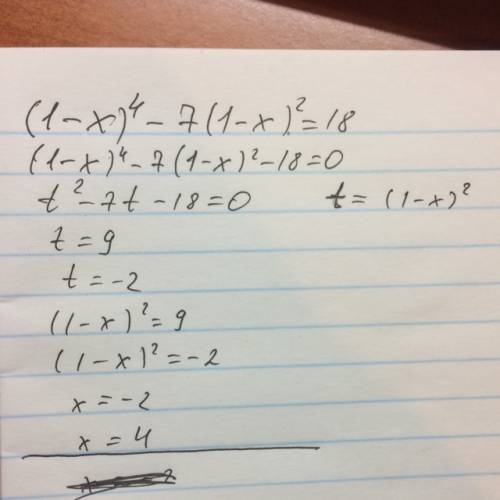 (1-x)⁴ - 7(1-x)² = 18
(1-x)⁴ - 7(1-x)² - 18 = 0
t² - 7t - 18 = 0 t = (1-x)²
t = 9
t = -2
(1-x)² = 9
(1-x)² = -2
x = -2
x = 4